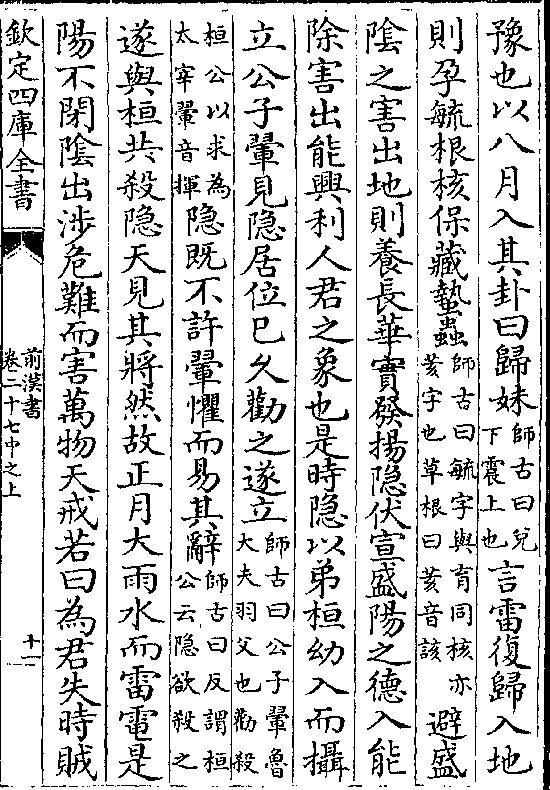 豫也以八月入其卦曰歸妹師古曰兊下震上也言雷復歸入地
則孕毓根核保藏蟄蟲師古曰毓字與育同核亦荄字也草根曰荄音該避盛
陰之害出地則養長華實發揚隐伏宣盛陽之德入能
除害出能興利人君之象也是時隐以弟桓幼入而攝
立公子翬見隐居位已久勸之遂立師古曰公子翬魯大夫羽父也勸殺
桓公以求為太宰翬音揮隐既不許翬懼而易其辭師古曰反謂桓公云隐欲殺之
遂與桓共殺隐天見其將然故正月大雨水而雷電是
陽不閉陰出涉危難而害萬物天戒若曰為君失時賊
欽定四庫全書
前漢書
卷二十七中之上
十一